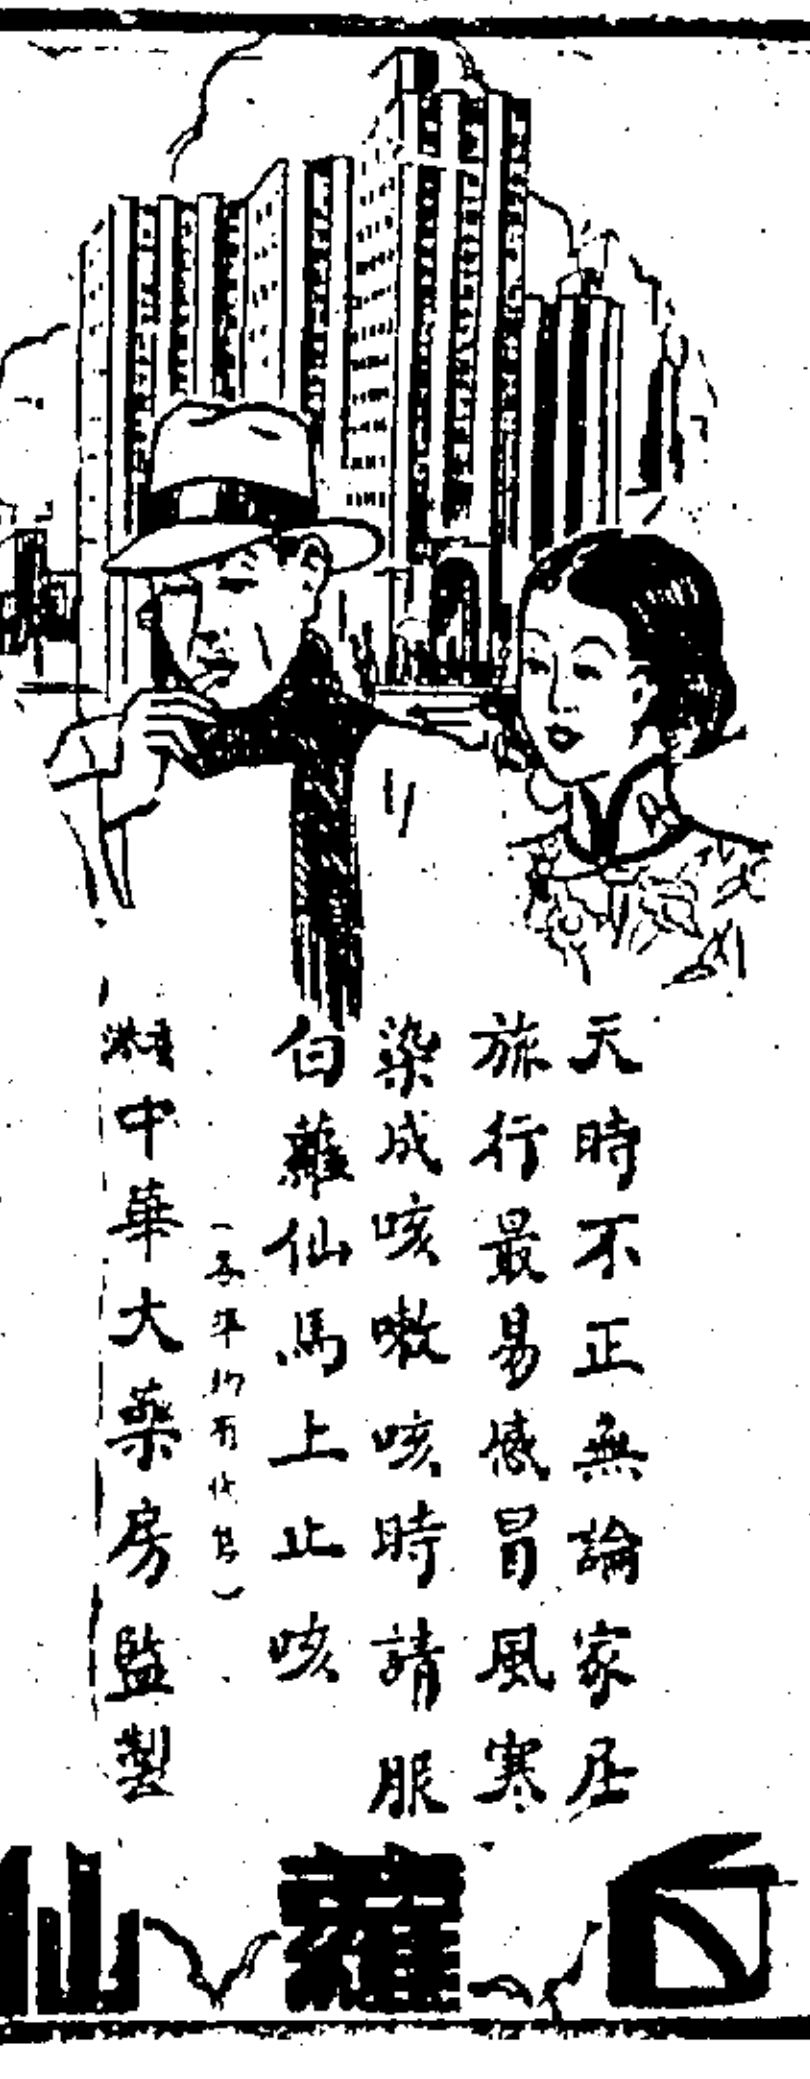 天時不正無論家居
旅行最易感冒風寒
染成咳嗽咳時請服
白蘿仙馬上止咳
有代售）
中華大藥房監製
白蘿仙